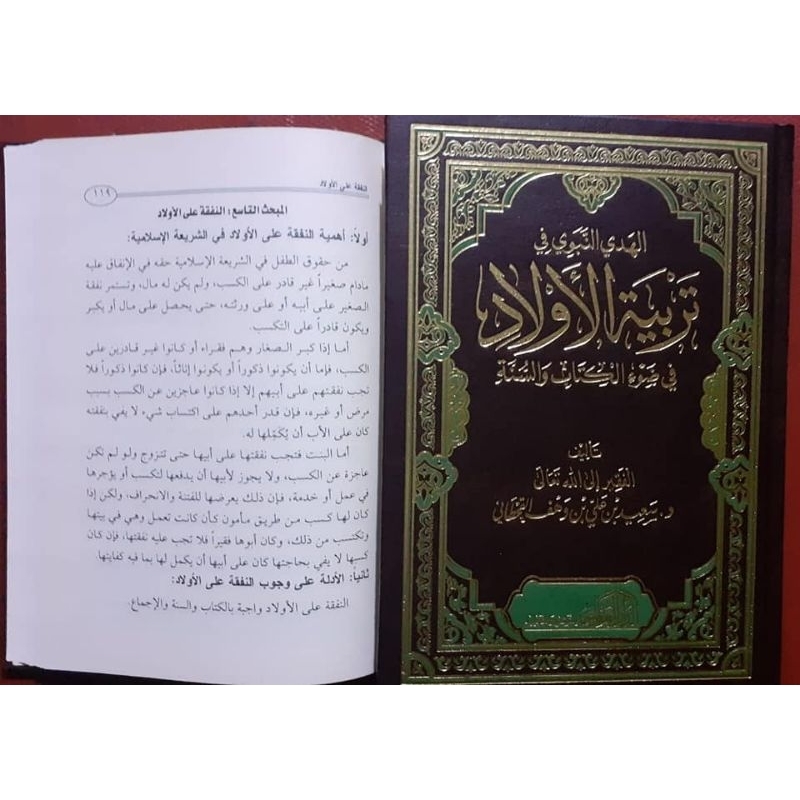 النفقة على الأولاد
١١٩
المبحث التاسع: النفقة على الأولاد
أولاً: أهمية النفقة على الأولاد في الشريعة الإسلامية:
من حقوق الطفل في الشريعة الإسلامية حقه في الإنفاق عليه
مادام صغيراً غير قادر على الكسب، ولم يكن له مال، وتستمر نفقة
الصغير على أبيه أو على ورثته، حتى يحصل على مال أو يكبر
ويكون قادراً على التكسب.
أما إذا كبر الصغار وهم فقراء أو كانوا غير قادرين على
الكسب، فإما أن يكونوا ذكوراً أو يكونوا إناثاً، فإن كانوا ذكوراً فلا
تجب نفقتهم على أبيهم إلا إذا كانوا عاجزين عن الكسب بسبب
مرض أو غيره، فإن قدر أحدهم على اكتساب شيء لا يفي بنفقته
كان على الأب أن يُكَمِّلها له.
أما البنت فتجب نفقتها على أبيها حتى تتزوج ولو لم تكن
عاجزة عن الكسب، ولا يجوز لأبيها أن يدفعها لتكسب أو يؤجرها
في عمل أو خدمة، فإن ذلك يعرضها للفتنة والانحراف، ولكن إذا
كان لها كسب من طريق مأمون كأن كانت تعمل وهي في بيتها
وتكتسب من ذلك، وكان أبوها فقيراً فلا تجب عليه نفقتها، فإن كان
كسبها لا يفي بحاجتها كان على أبيها أن يكمل لها بما فيه كفايتها.
ثانياً: الأدلة على وجوب النفقة على الأولاد:
النفقة على الأولاد واجبة بالكتاب والسنة والإجماع.
الهدي النبوي في
تربية الأولاد
في ضوء الكتاب والسنة
تأليف
الفقير إلى الله تعالى
د. سعيد بن علي بن وهف القحطاني